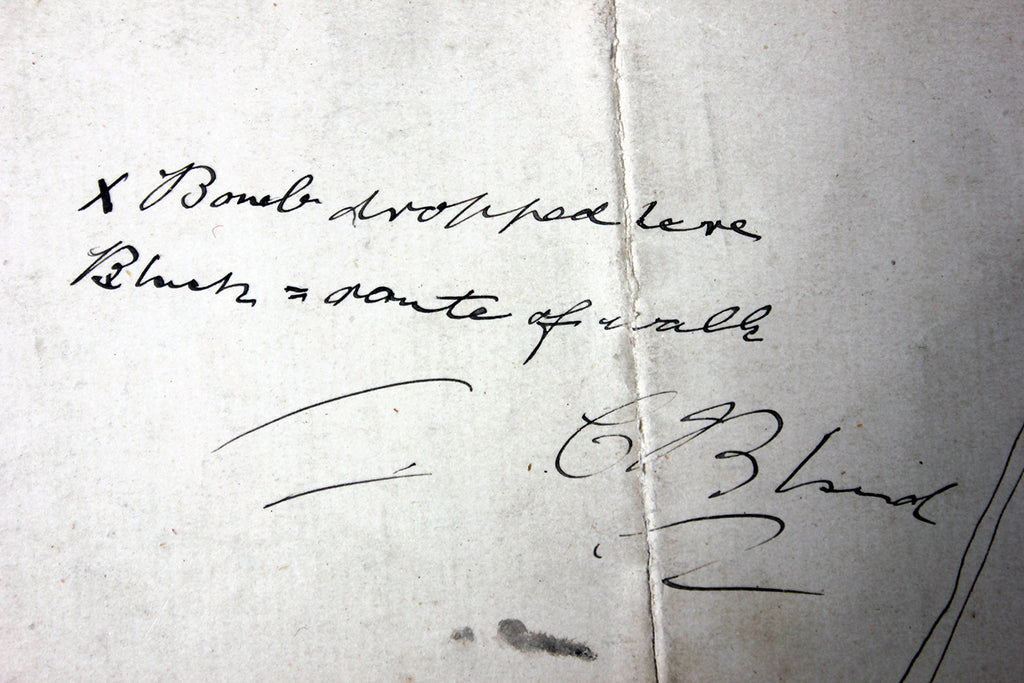 X Bomb dropped here
Black = route of walk
C J Blund